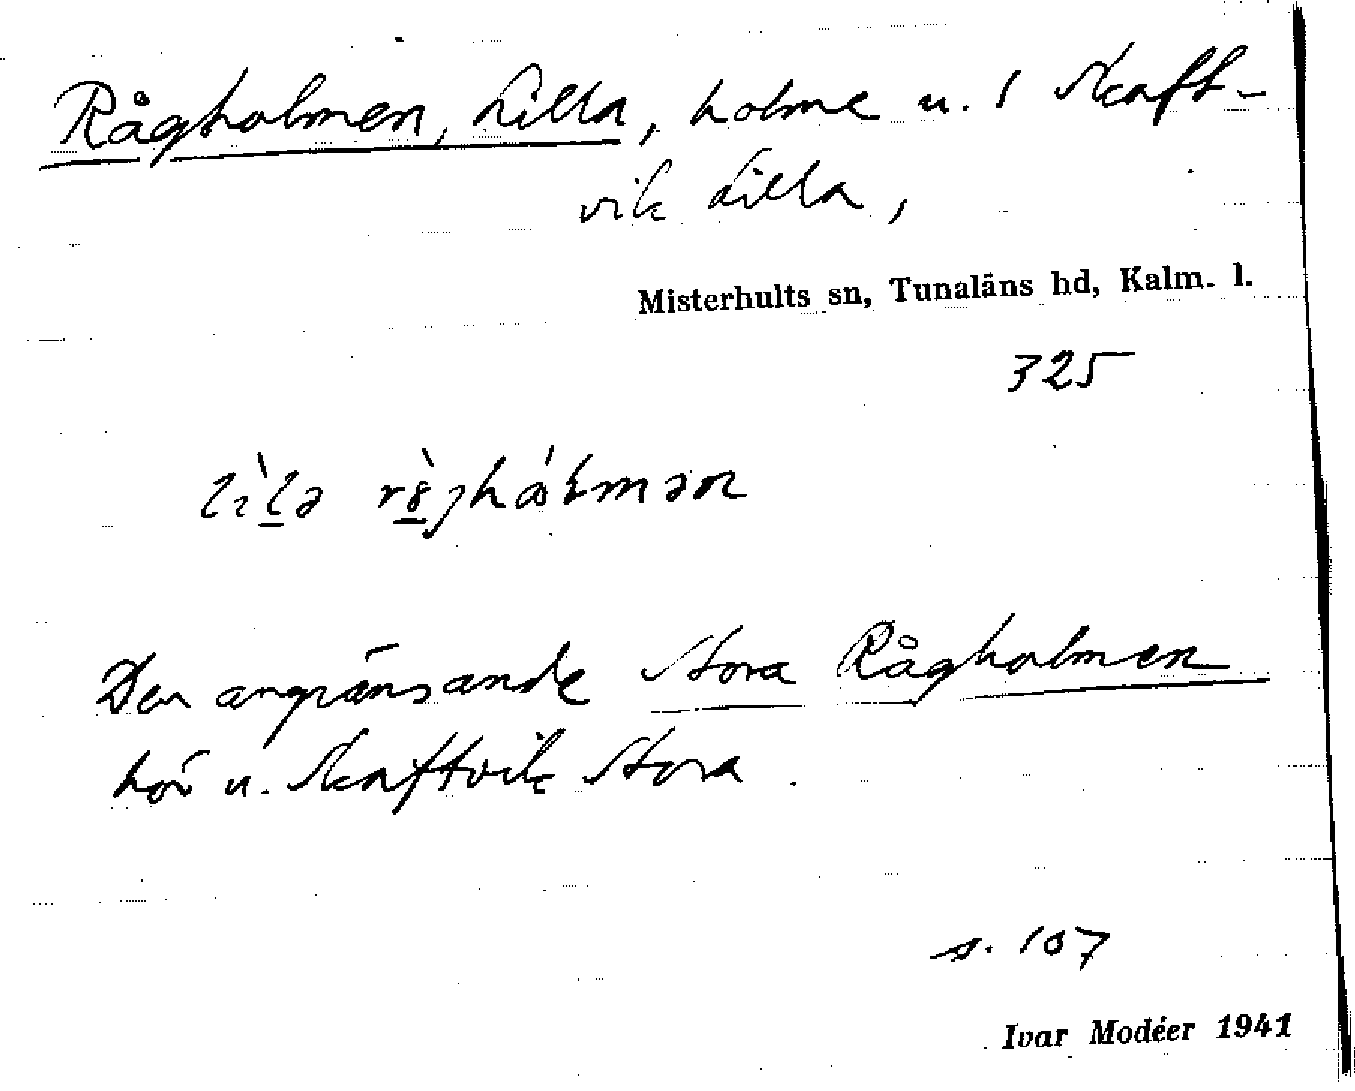 Rågholmen, Lilla, holme u. 1 Skaft-
vik Lilla,
Misterhults sn, Tunaläns hd, Kalm. l.
325
Den angränsande Stora Rågholmen
hör u. Skaftvik Stora.
s. 107
Ivar Modéer 1941